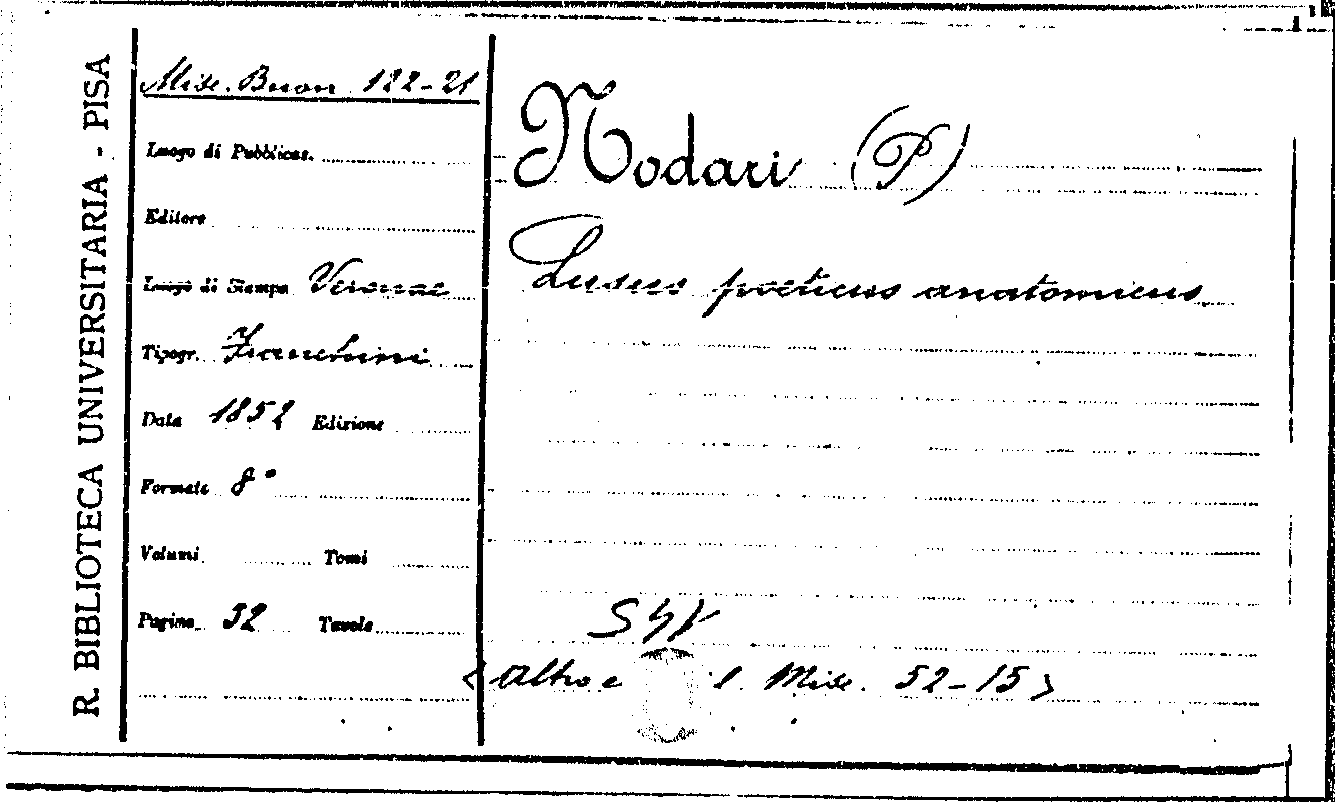 R. BIBLIOTECA UNIVERSITARIA - PISA
Misc. Buon 122-21
Luogo di Pubblicas.
Editore
Luogo di Stampa Veronae
Tipogr. Franchini
Data 1852 Edizione
Formato 8°
Volumi Tomi
Pagine 32 Tavole
Nodari (P)
Lusus poeticus anatomicus
<altro e Misc. 52-15>